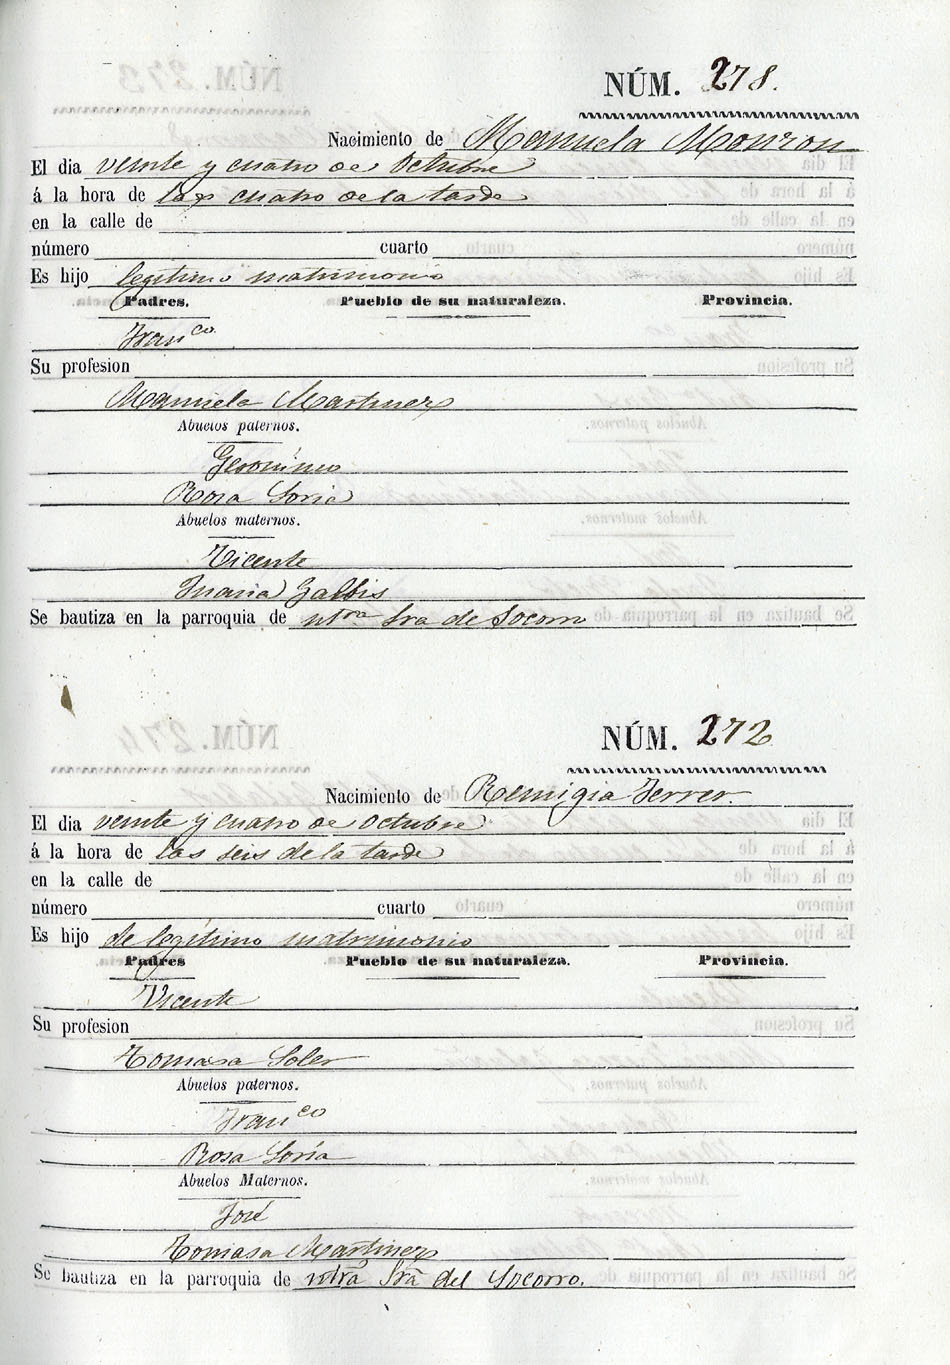 NÚM. 278.
Nacimiento de Manuela Monzon
El dia veinte y cuatro de Octubre
á la hora de las cuatro de la tarde
en la calle de
número cuarto
Es hijo legitimo matrimonio
Padres. Pueblo de su naturaleza. Provincia.
Franco
Su profesion
Manuela Martinez
Abuelos paternos.
Geronimo
Rosa Soria
Abuelos maternos.
Vicente
Maria Galbis
Se bautiza en la parroquia de ntra Sra de Socorro
NÚM. 272
Nacimiento de Remigia Ferrer.
El dia veinte y cuatro de Octubre
á la hora de las seis de la tarde
en la calle de
número cuarto
Es hijo de legítimo matrimonio
Padres Pueblo de su naturaleza. Provincia.
Vicente
Su profesion
Tomasa Soler
Abuelos paternos.
Franco
Rosa Soria
Abuelos Maternos.
José
Tomasa Martinez
Se bautiza en la parroquia de ntra Sra del Socorro.